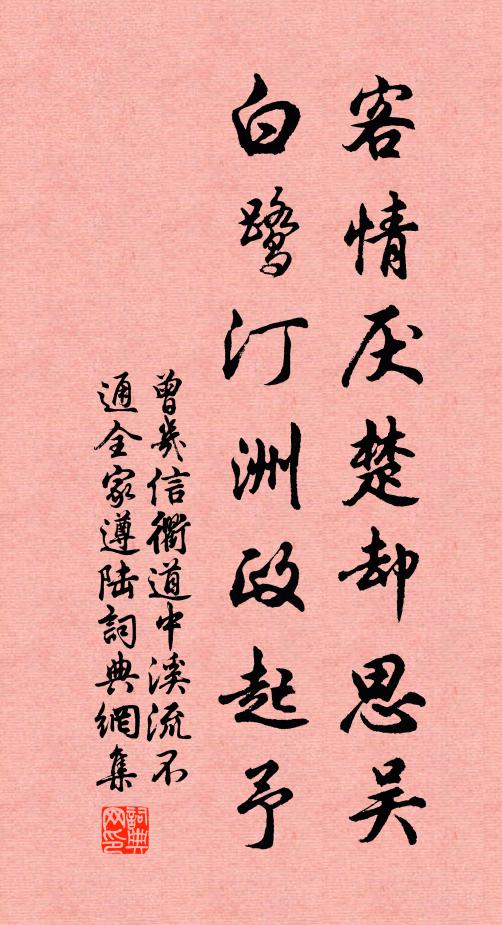 客情厌楚却思吴
白鹭汀洲政起予
曾幾信衢道中溪流不
通全家遵陆詞典網集
詞典网印